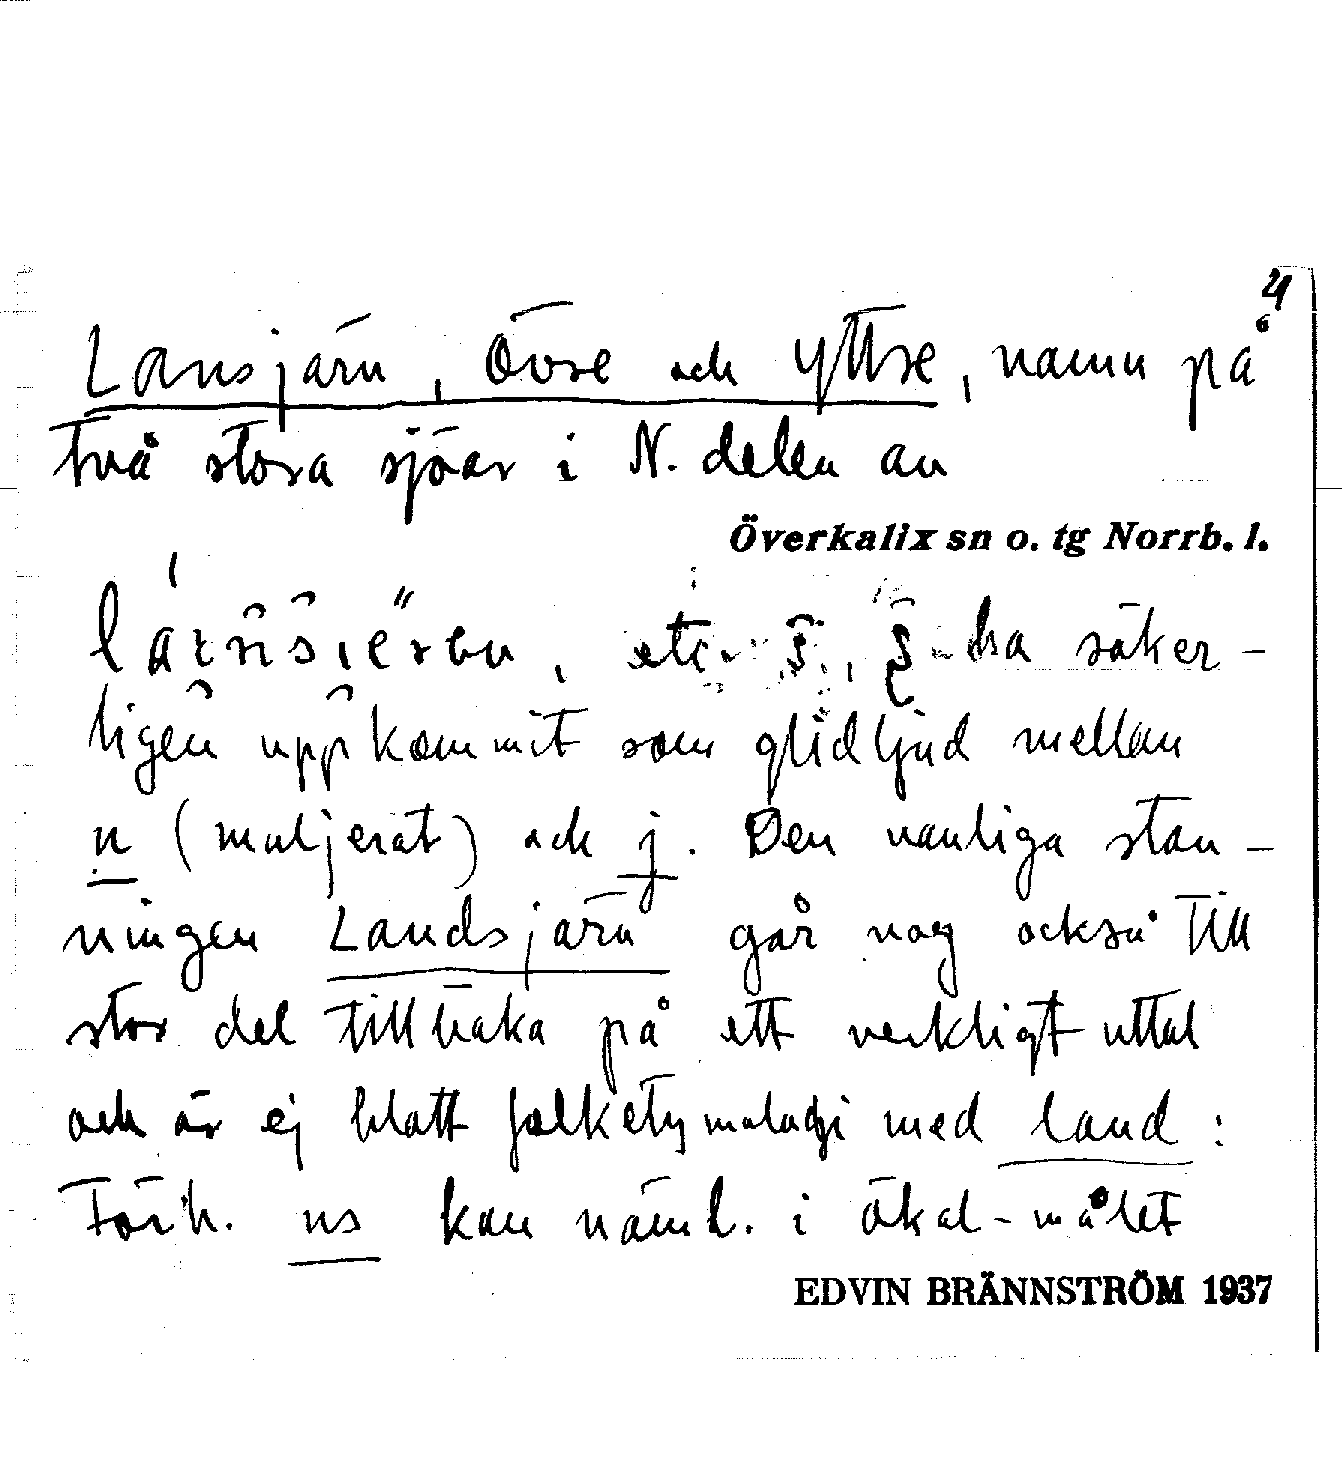 4
Lansjärn, Övre och Yttre, namn på
två stora sjöar i N. delen av
Överkalix sn o. tg Norrb. l.
etc. ha säker-
ligen uppkommit som glidljud mellan
n (muljerat) och j. Den vanliga stav-
ningen Landsjärn går nog också till
stor del tillbaka på ett verkligt uttal
och är ej blott folketymologi med land:
Förb. ns kan näml. i ökal-målet
EDVIN BRÄNNSTRÖM 1937